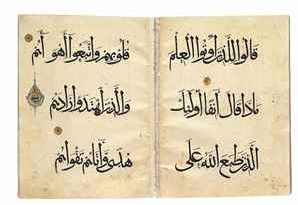 قالوا للذين أوتوا العلم
ماذا قال آنفا أولئك
الذين طبع الله على
قلوبهم واتبعوا أهواءهم
والذين اهتدوا زادهم
هدى وآتاهم تقواهم